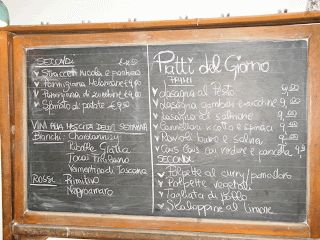 SECONDI
Straccetti rucola e pomodoro
Parmigiana Melanzane
Parmigiana di zucchine
Sformato di patate € 9,50
VINI ALLA MESCITA DELLA SETTIMANA
Bianchi: Chardonnay
Ribolla Gialla
Tocai Friulano
Vermentino di Toscana
Rossi: Primitivo
Negroamaro
Piatti del Giorno
PRIMI
Lasagna al Pesto 9,00
Lasagna gamberi e zucchine 9,00
Lasagna al salmone 9,00
Cannelloni ricotta e spinaci 9,00
Ravioli burro e salvia 9,00
Cous Cous con verdure e pancetta
SECONDI
Polpette al curry/pomodoro
Polpette vegetali
Tagliata di pollo
Scaloppine al limone